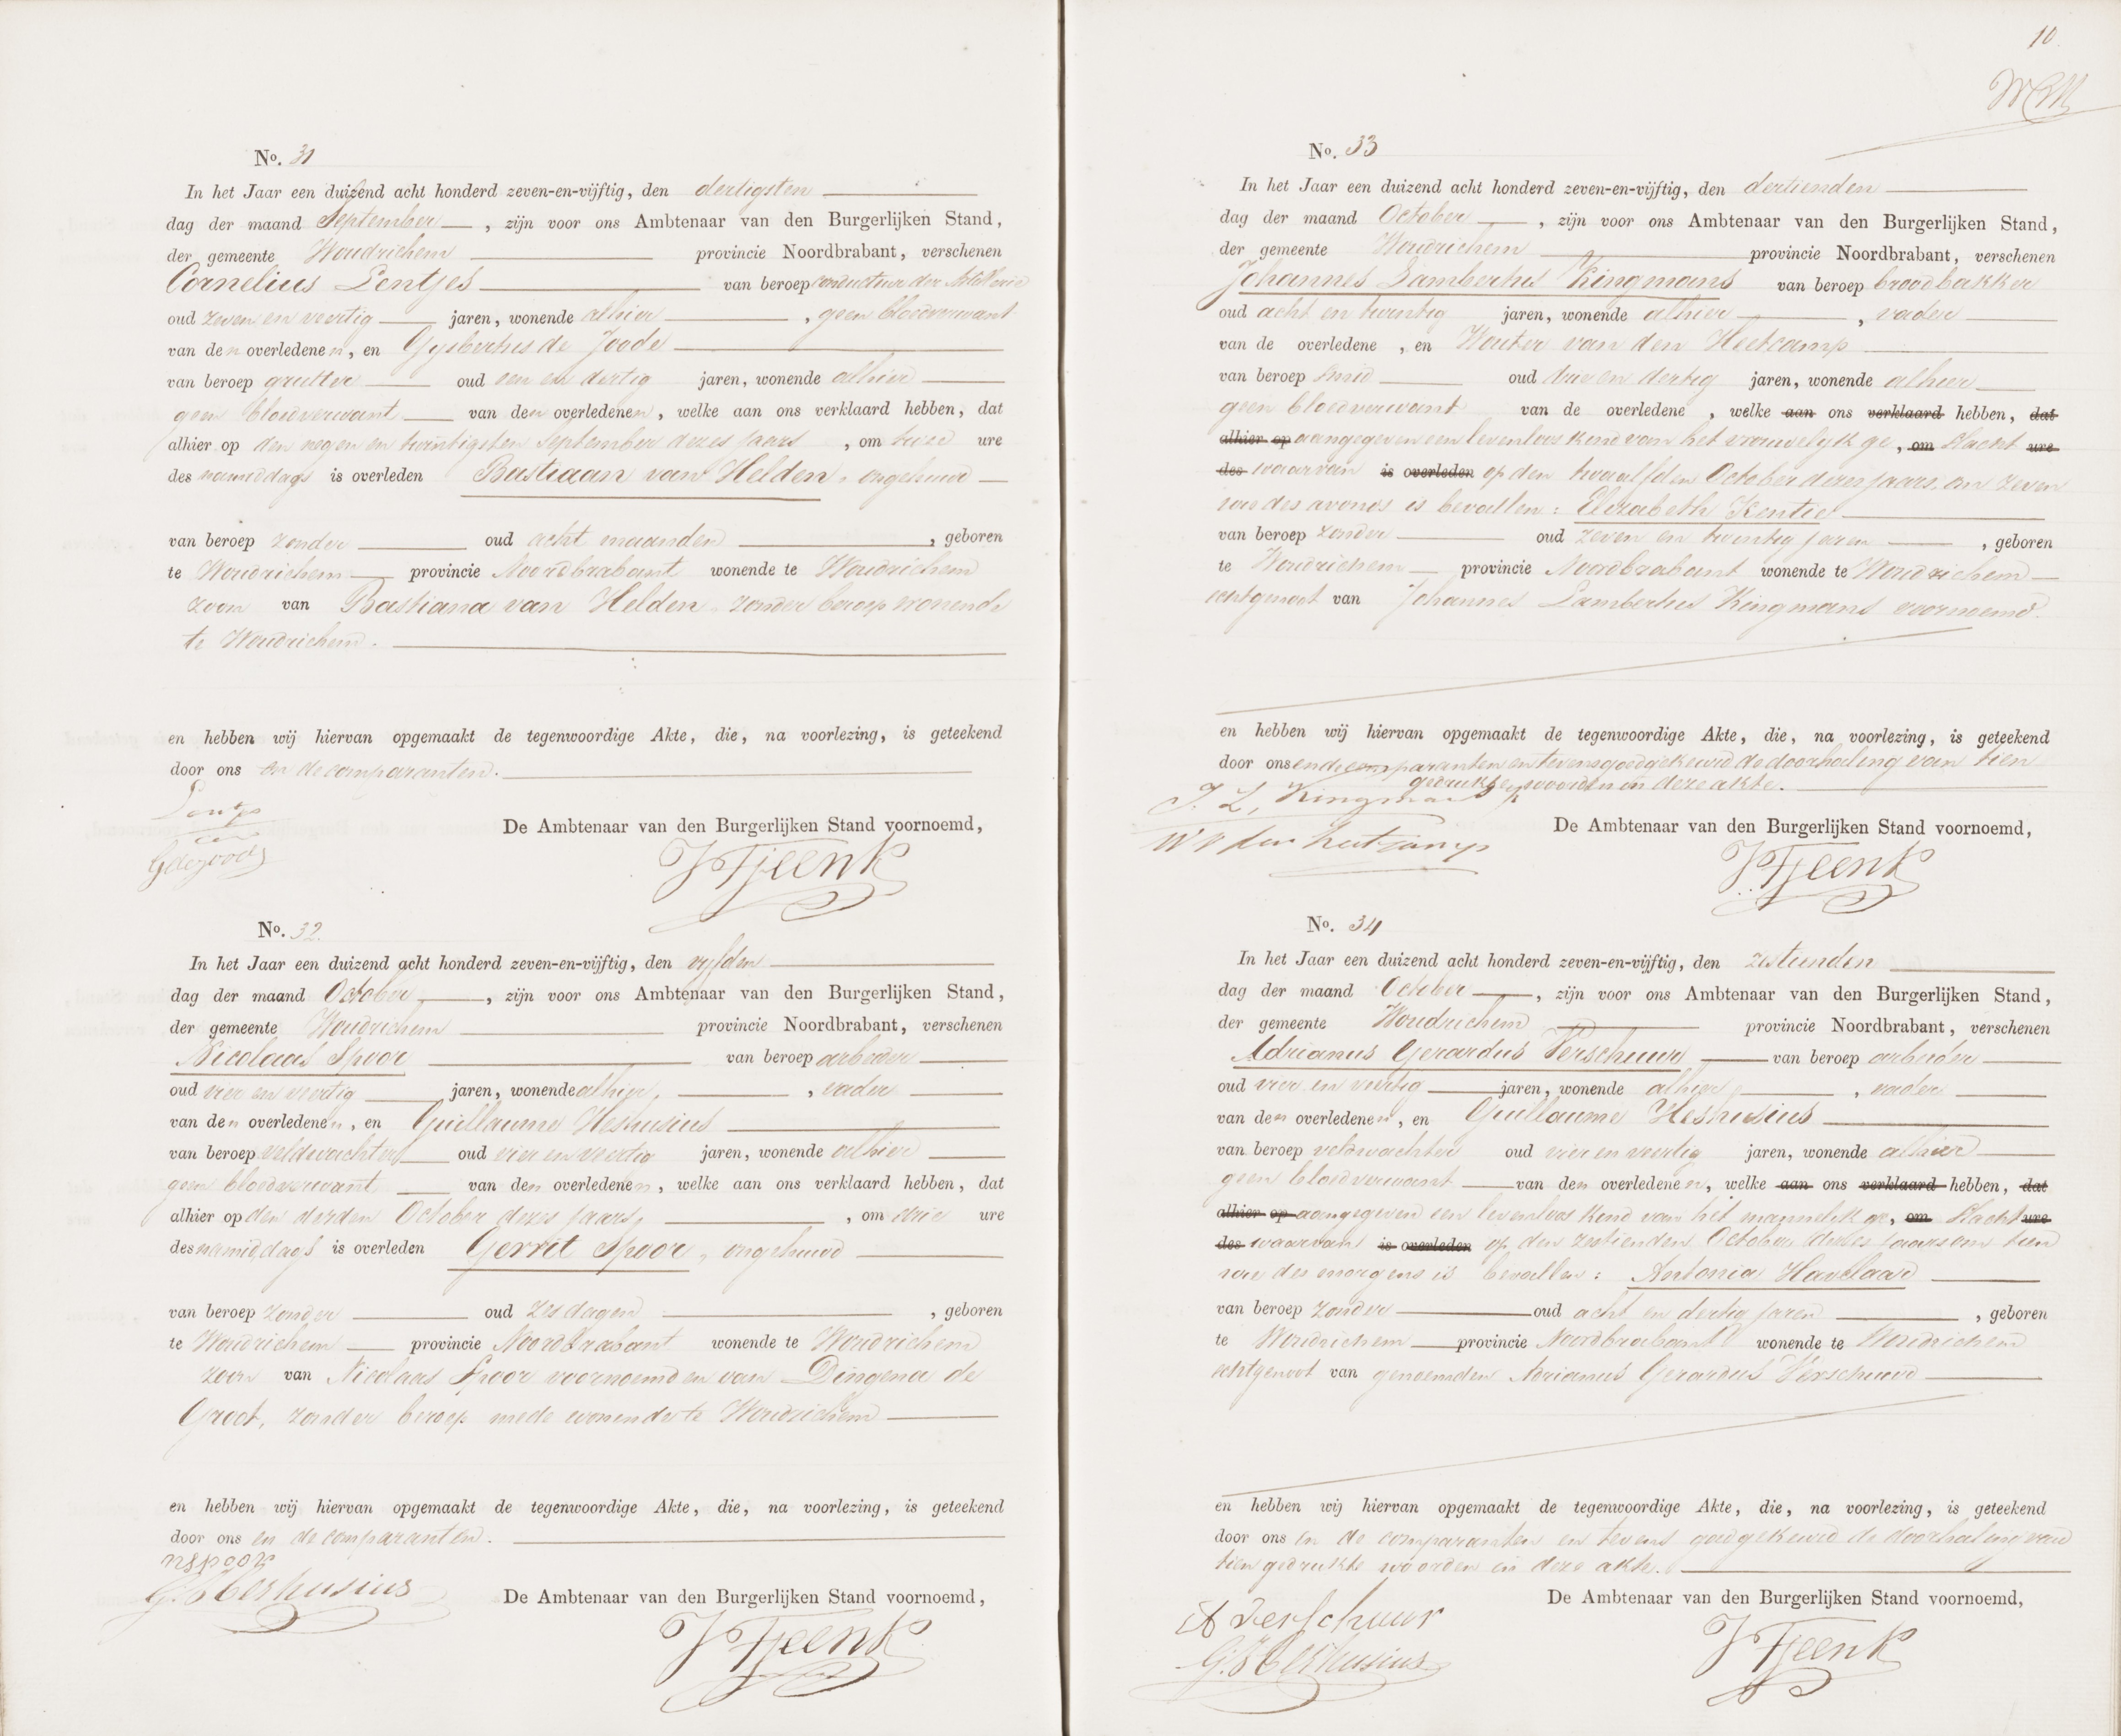 No. 31
In het Jaar een duizend acht honderd zeven-en-vijftig, den dertigsten
dag der maand September, zijn voor ons Ambtenaar van den Burgerlijken Stand,
der gemeente Woudrichem provincie Noordbrabant, verschenen
Cornelius Lentjes van beroep conducteur der Artillerie
oud zeven en veertig jaren, wonende alhier, geen bloedverwant
van den overledenen, en Gijsbertus de Joode
van beroep grutter oud een en dertig jaren, wonende alhier
geen bloedverwant van den overledenen, welke aan ons verklaard hebben, dat
alhier op den negen en twintigsten September dezes jaars, om twee ure
des namiddags is overleden Bastiaan van Helden, ongehuwd
van beroep zonder oud acht maanden, geboren
te Woudrichem provincie Noordbrabant wonende te Woudrichem
zoon van Bastiana van Helden, zonder beroep wonende
te Woudrichem.
en hebben wij hiervan opgemaakt de tegenwoordige Akte, die, na voorlezing, is geteekend
door ons en de comparanten.
Lentjes
De Ambtenaar van den Burgerlijken Stand voornoemd,
G de Joode
J Tjeenk
No. 32.
In het Jaar een duizend acht honderd zeven-en-vijftig, den vijfden
dag der maand October, zijn voor ons Ambtenaar van den Burgerlijken Stand,
der gemeente Woudrichem provincie Noordbrabant, verschenen
Nicolaas Spoor van beroep arbeider
oud vier en veertig jaren, wonende alhier, vader
van den overledenen, en Guillaume Heshusius
van beroep veldwachter oud vier en veertig jaren, wonende alhier
geen bloedverwant van den overledenen, welke aan ons verklaard hebben, dat
alhier op den derden October dezes jaars, om drie ure
des namiddags is overleden Gerrit Spoor, ongehuwd
van beroep zonder oud zes dagen, geboren
te Woudrichem provincie Noordbrabant wonende te Woudrichem
zoon van Nicolaas Spoor voornoemd en van Dingena de
Groot, zonder beroep mede wonende te Woudrichem
en hebben wij hiervan opgemaakt de tegenwoordige Akte, die, na voorlezing, is geteekend
door ons en de comparanten.
n spoor
G. Heshusius
De Ambtenaar van den Burgerlijken Stand voornoemd,
J Tjeenk
10
No. 33
In het Jaar een duizend acht honderd zeven-en-vijftig, den dertienden
dag der maand October, zijn voor ons Ambtenaar van den Burgerlijken Stand,
der gemeente Woudrichem provincie Noordbrabant, verschenen
Johannes Lambertus Kingmans van beroep broodbakker
oud acht en twintig jaren, wonende alhier, vader
van de overledene, en Wouter van den Heetcamp
van beroep smid oud drie en dertig jaren, wonende alhier
geen bloedverwant van de overledene, welke aan ons verklaard hebben, dat
alhier op aangegeven een levenloos kind van het vrouwelijk ge, om slacht ure
des waarvan is overleden op den twaalfden October dezes jaars, om zeven
ure des avonds is bevallen: Elizabeth Kentie
van beroep zonder oud zeven en twintig jaren, geboren
te Woudrichem provincie Noordbrabant wonende te Woudrichem
echtgenoot van Johannes Lambertus Kingmans voornoemd.
en hebben wij hiervan opgemaakt de tegenwoordige Akte, die, na voorlezing, is geteekend
door ons en de comparanten en tevens goedgekeurd de doorhaling van tien
gedrukte woorden in deze akte.
J. L, Kingmans
De Ambtenaar van den Burgerlijken Stand voornoemd,
W V den heetkamp
J Tjeenk
No. 34
In het Jaar een duizend acht honderd zeven-en-vijftig, den zestienden
dag der maand October, zijn voor ons Ambtenaar van den Burgerlijken Stand,
der gemeente Woudrichem provincie Noordbrabant, verschenen
Adrianus Gerardus Verschuur van beroep arbeider
oud vier en veertig jaren, wonende alhier, vader
van den overledenen, en Guillaume Heshusius
van beroep veldwachter oud vier en veertig jaren, wonende alhier
geen bloedverwant van den overledenen, welke aan ons verklaard hebben, dat
alhier op aangegeven een levenloos kind van het mannelijk ge, om slacht ure
des waarvan is overleden op den zestienden October dezes jaars om tien
ure des morgens is bevallen: Antonia Havelaar
van beroep zonder oud acht en dertig jaren, geboren
te Woudrichem provincie Noordbrabant wonende te Woudrichem
echtgenoot van genoemden Adrianus Gerardus Verschuur
en hebben wij hiervan opgemaakt de tegenwoordige Akte, die, na voorlezing, is geteekend
door ons en de comparanten en tevens goedgekeurd de doorhaling van
tien gedrukte woorden in deze akte.
De Ambtenaar van den Burgerlijken Stand voornoemd,
verschuur
G. Heshusius
J Tjeenk